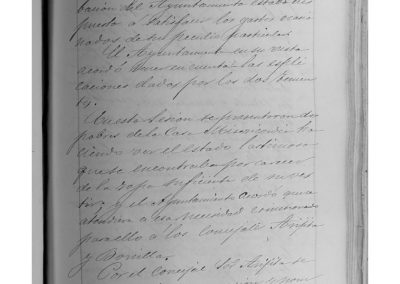 bación del Ayuntamiento estaba dis
puesta a satisfacer los gastos ocasio
nados de su peculio particular.
El Ayuntamiento en su vista
acordó tener en cuenta las espli
caciones dadas por los dos
En esta Sesion se presentaron dos
pobres de la Casa Misericordia ha
ciendo ver el estado lastimoso
que se encontraba por carecer
de la ropa suficiente de su ves
tir y el Ayuntamiento acordó que se
atendiera a esa necesidad comisionado
para ello á los Concejales Arifita
y Bonilla.
Por el Concejal Sor Arifita se